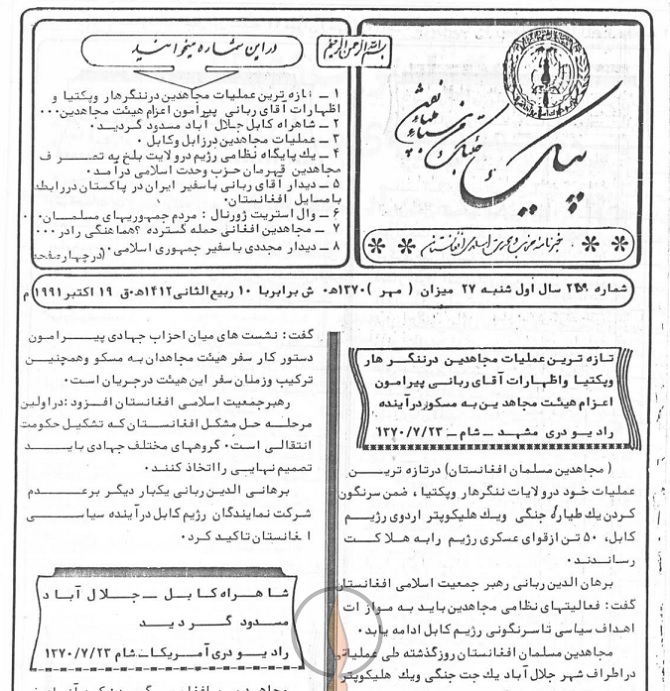 بسم الله الرحمن الرحیم
پیک
خبرنامه حزب وحدت اسلامی افغانستان
در این شماره میخوانید
۱ ــ تازه ترین عملیات مجاهدین در ننگرهار و پکتیا و
اظهارات آقای ربانی پیرامون اعزام هیئت مجاهدین...
۲ ــ شاهراه کابل جلال آباد مسدود گردید.
۳ ــ عملیات مجاهدین در زابل و کابل.
۴ ــ یک پایگاه نظامی رژیم در ولایت بلخ به تصرف
مجاهدین قهرمان حزب وحدت اسلامی درآمد.
۵ ــ دیدار آقای ربانی با سفیر ایران در پاکستان در رابطه
با مسایل افغانستان.
۶ ــ وال استریت ژورنال : مردم جمهوریهای مسلمان...
۷ ــ مجاهدین افغانی حمله گسترده ؟هماهنگی را در...
۸ ــ دیدار مجددی با سفیر جمهوری اسلامی.
(در چهار صفحه
شماره ۲۵۹ سال اول شنبه ۲۷ میزان ( مهر ) ۱۳۷۰ه‍. ش برابر با ۱۰ ربیع الثانی ۱۴۱۲ه‍.ق ۱۹ اکتبر ۱۹۹۱ م
تازه ترین عملیات مجاهدین در ننگرهار
و پکتیا و اظهارات آقای ربانی پیرامون
اعزام هیئت مجاهدین به مسکو در آینده
رادیو دری مشهد ــ شام ــ ۱۳۷۰/۷/۲۳
( مجاهدین مسلمان افغانستان) در تازه ترین
عملیات خود در ولایات ننگرهار و پکتیا ، ضمن سرنگون
کردن یک طیاره جنگی و یک هلیکوپتر اردوی رژیم
کابل، ۵۰ تن از قوای عسکری رژیم را به هلاکت
رساندند.
برهان الدین ربانی رهبر جمعیت اسلامی افغانستان
گفت: فعالیتهای نظامی مجاهدین باید به موازات
اهداف سیاسی تا سرنگونی رژیم کابل ادامه یابد.
مجاهدین مسلمان افغانستان روز گذشته طی عملیاتی
در اطراف شهر جلال آباد یک جت جنگی و یک هلیکوپتر
گفت: نشست های میان احزاب جهادی پیرامون
دستور کار سفر هیئت مجاهدان به مسکو و همچنین
ترکیب و زمان سفر این هیئت در جریان است.
رهبر جمعیت اسلامی افغانستان افزود: در اولین
مرحله حل مشکل افغانستان که تشکیل حکومت
انتقالی است. گروههای مختلف جهادی باید
تصمیم نهایی را اتخاذ کنند.
برهانی الدین ربانی یکبار دیگر بر عدم
شرکت نمایندگان رژیم کابل در آینده سیاسی
افغانستان تاکید کرد.
شاهراه کابل ــ جلال آباد
مسدود گردید
رادیو دری آمریکا ــ شام ۱۳۷۰/۷/۲۳